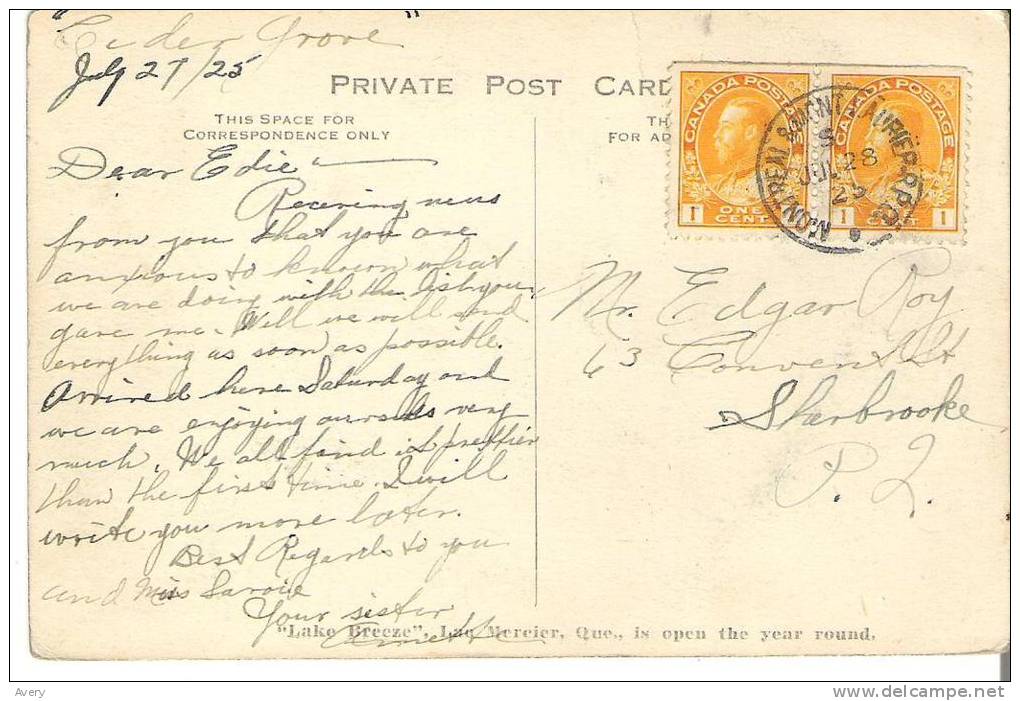 "Ceder Grove"
July 27/25
PRIVATE POST CARD
THIS SPACE FOR
CORRESPONDENCE ONLY
TH
FOR AD
CANADA POSTAGE
CANADA POSTAGE
1 ONE CENT
1 CENT 1
MONTREAL & MONT LAURIER R.P.O.
S
JUL 28
25
Dear Edie
Receiving news
from you that you are
anxious to known what
we are doing with the list you
gave me. Well we will send
everything as soon as possible.
Arrived here Saturday and
we are enjoying ourselves very
much. We all find it prettier
than the first time. I will
write you more later.
Best Regards to you
and Miss Savoie
Your sister
Mr. Edgar Roy
63 Convent St
Sherbrooke
P. Q.
"Lake Breeze", Lac Mercier, Que., is open the year round.
Avery
www.delcampe.net